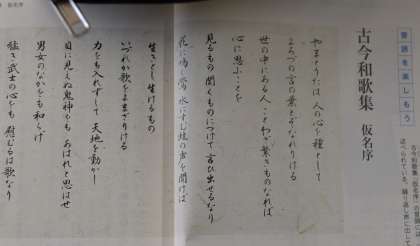 仮名序
音読を楽しもう
古今和歌集 仮名序
やまとうたは 人の心を種として
よろづの言の葉とぞなれりける
世の中にある人 ことわざ繁きものなれば
心に思ふことを
見るもの聞くものにつけて 言ひ出せるなり
花に鳴く鶯 水にすむ蛙の声を聞けば
生きとし生けるもの
いづれか歌をよまざりける
力をも入れずして 天地を動かし
目に見えぬ鬼神をも あはれと思はせ
男女のなかをも和らげ
猛き武士の心をも 慰むるは歌なり